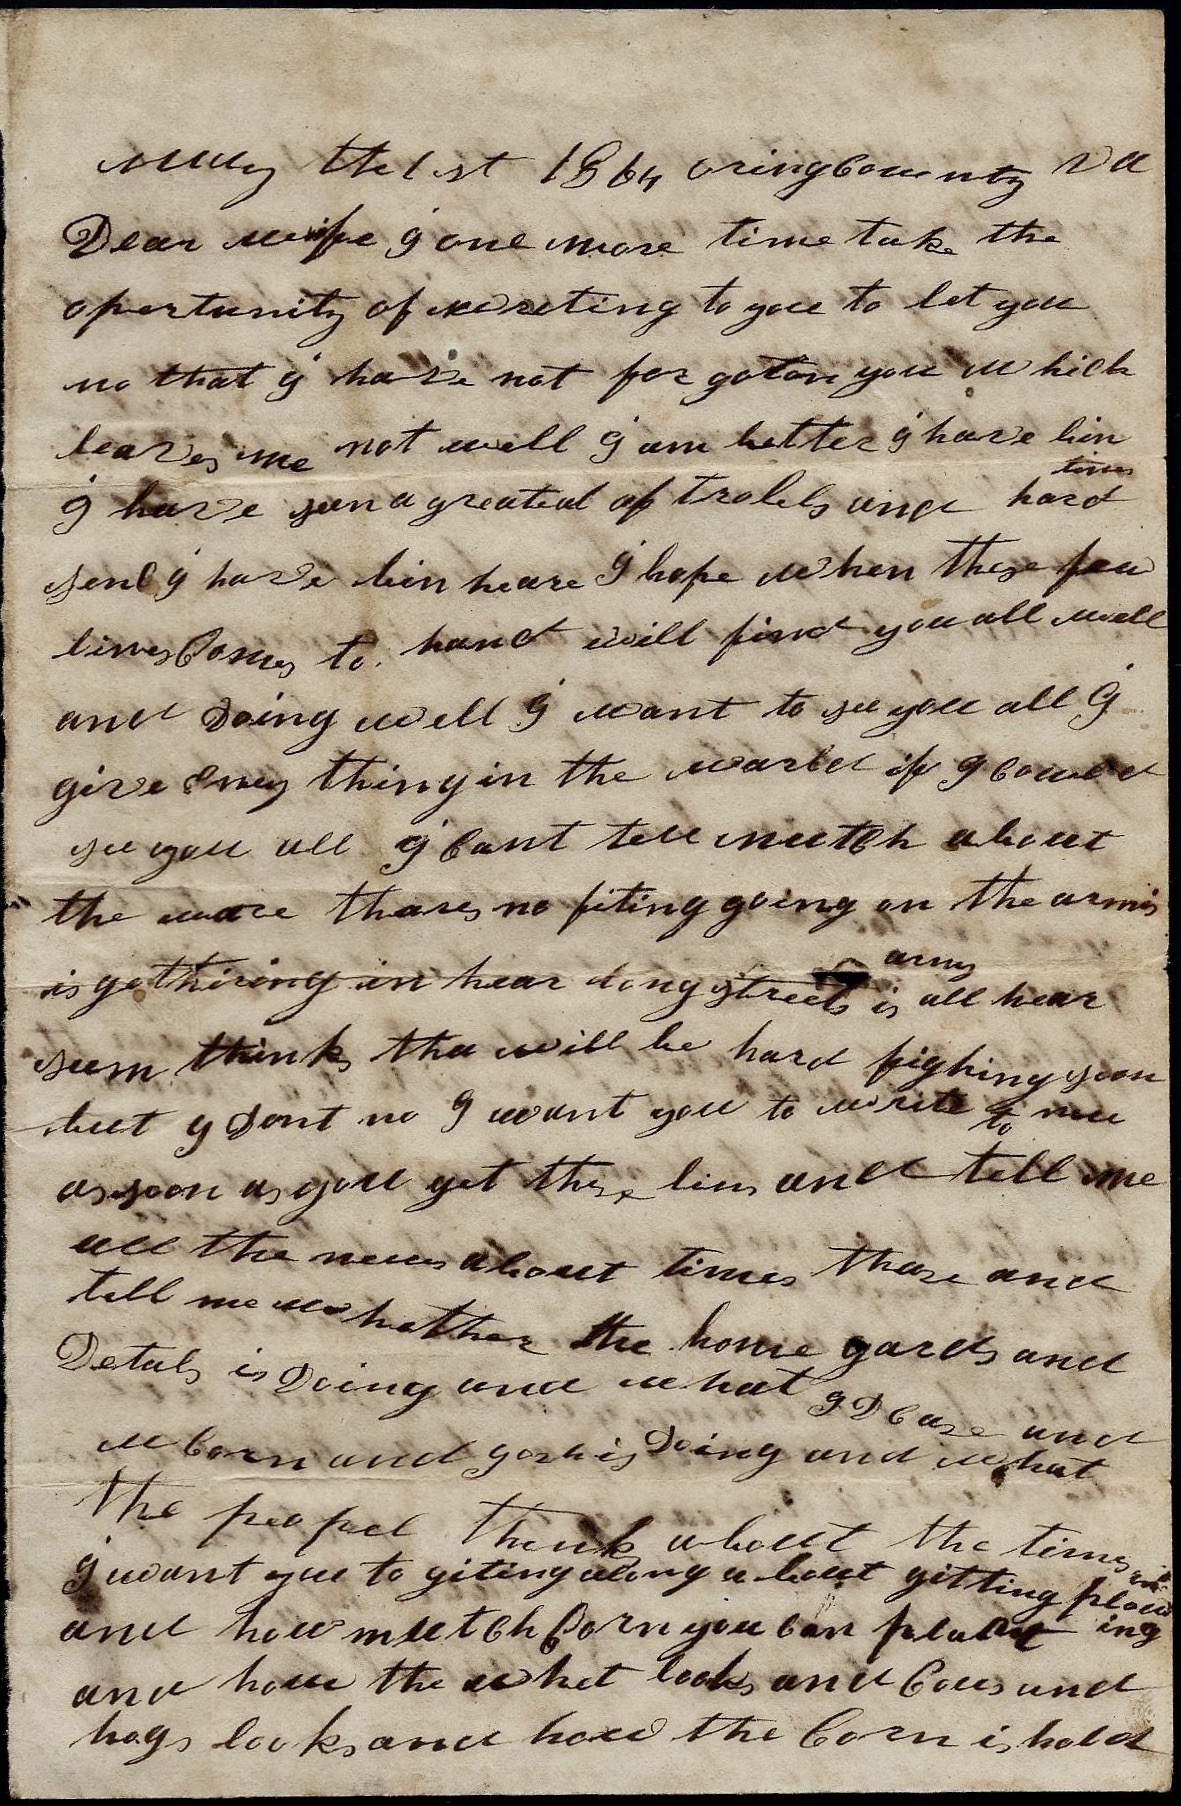 May the 1 st 1864 oring County Va
Dear wife I one more time take the
opertunity of wreting to you to let you
no that I have not for goton you which
leaves me not well I am better I have bin
I have sen a greateal of trobels and hard times
senc I have bin heare I hope when these few
lines Comes to hand will find you all well
and Doing well I want to see you all I
give Eney thing in the warld if I Could
see you all I Cant tell mutch about
the ware thares no fiting going on the armis
is gethiring in hear longstreets army is all hear
sum thinks tha will be hard fighing soon
but I Dont no I want you to write to mee
as soon as you get these lins and tell me
all the news about times thare and
tell me whather the home gards and
Detals is Doing and what J D Case and
and is Doing and what
the peopel think about the times
I want you to giting along about gitting plowing
and how mutch Corn you Can plant
and how the whet looks and Cows and
hogs looks and how the Corn is hold